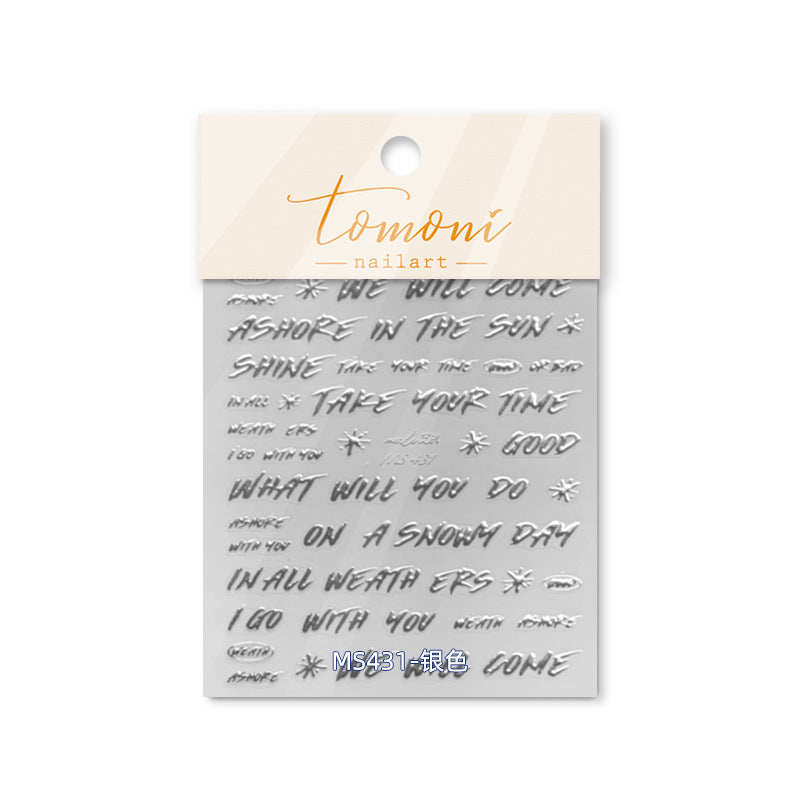 tomoni
nailart
ASHORE WE WILL COME
ASHORE IN THE SUN
SHINE TAKE YOUR TIME GOOD OR BAD
IN ALL TAKE YOUR TIME
WEATH ERS
I GO WITH YOU MS431 GOOD
WHAT WILL YOU DO
ASHORE
WITH YOU ON A SNOWY DAY
IN ALL WEATH ERS
I GO WITH YOU WEATH ASHORE
WEATH
ASHORE WE WILL COME
MS431-银色